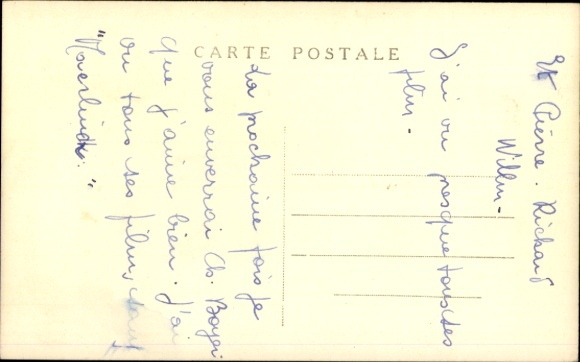 CARTE POSTALE
Et Pierre-Richard
Willm-
J'ai vu presque tous ses
film-
La prochaine fois je
vous enverrai Ch. Boyer
que j'aime bien. J'ai
vu tous ses films
"Mayerling"